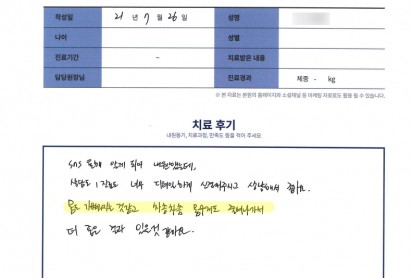 작성일 21년 7월 26일 성명
나이 성별
진료기간 - 치료받은 내용
담당원장님 진료경과 체중 - kg
※ 본 자료는 본원의 홈페이지와 소셜채널 등 마케팅 자료로도 활용 될 수 있습니다.
치료 후기
내원동기, 치료과정, 만족도 등을 적어 주세요
SNS 통해 알게 되어 내원했는데,
상담도, 진료도 너무 디테일하게 신경써주시고 상냥해서 좋아요.
몸은 가벼워지는 것같고 차츰차츰 몸무게도 줄어나가서
더 좋은 결과 있을것 같아요.